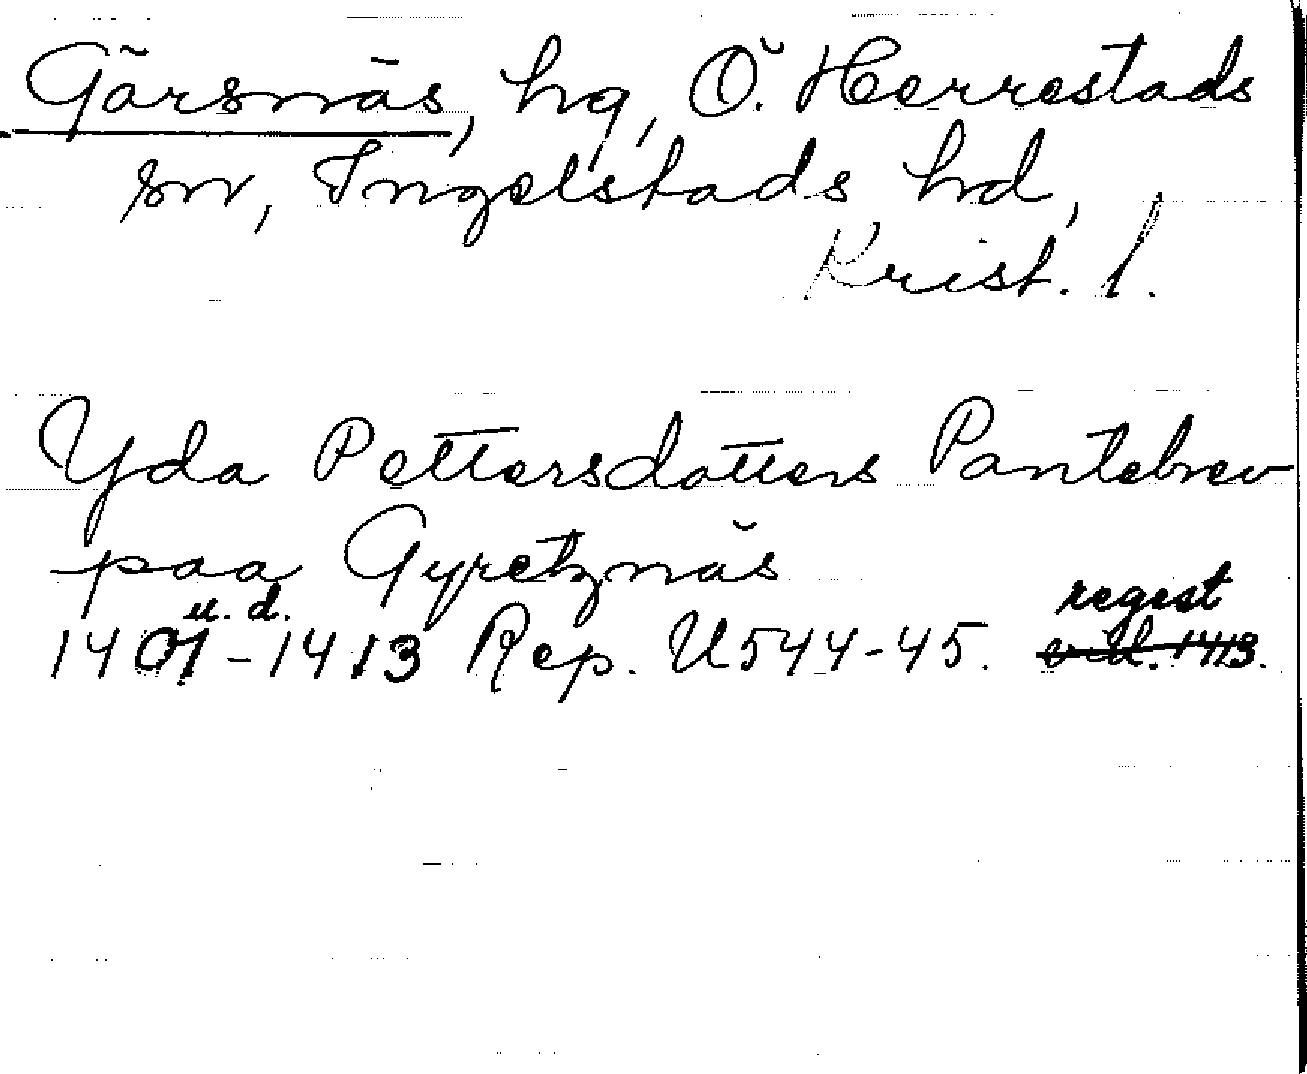 Gärsnäs, hg, Ö. Herrestads
sn, Ingelstads hd,
Krist. l.
Yda Pettersdatters Pantebrev
paa Gyretznäs
u. d. regest
1401-1413 Rep. U544-45.